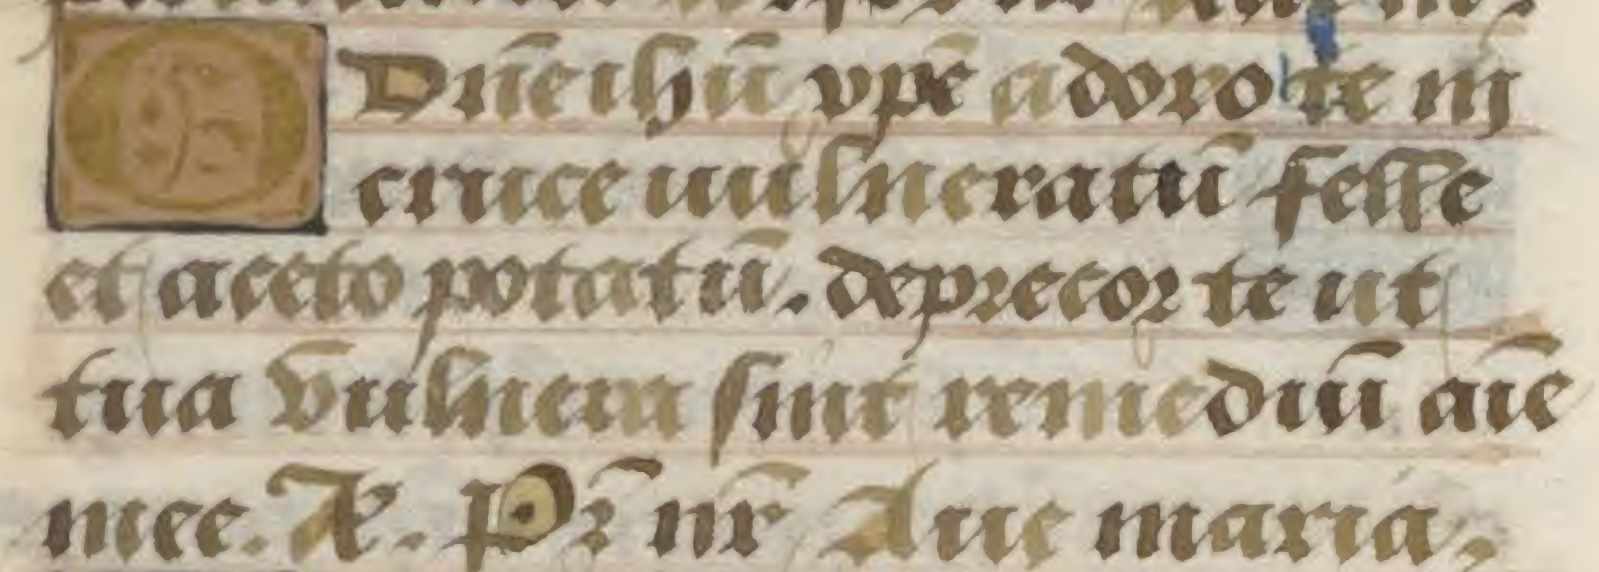 O Dn̄e ihū xp̄e adoro te in
cruce uulneratū felle
et aceto potatū. deprecor te ut
tua vulnera sint remediū aīe
mee. A. Pr̄ nr̄ Aue maria,